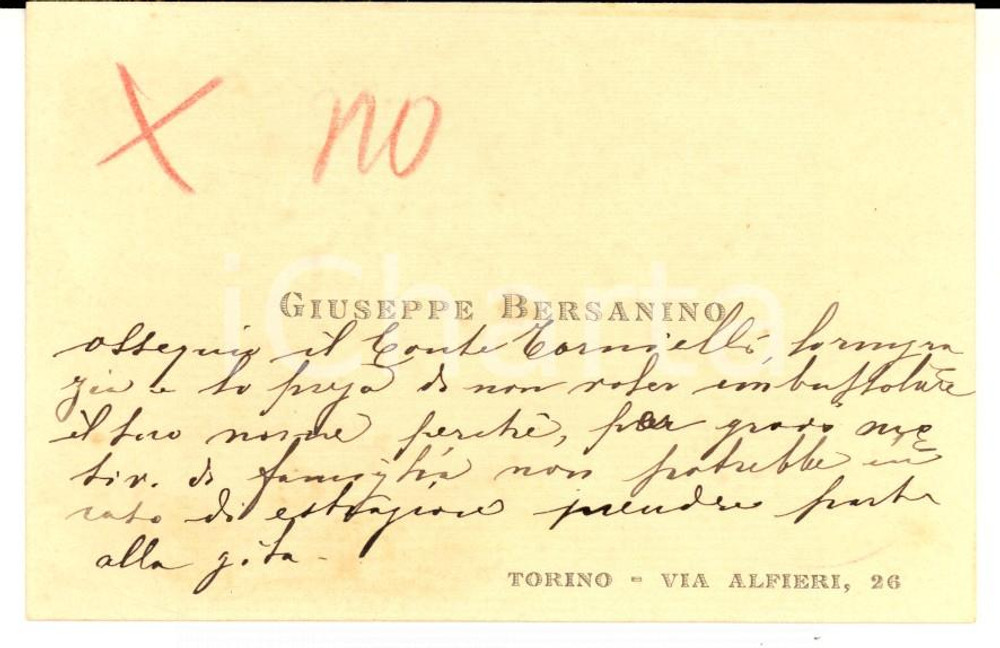 X no
GIUSEPPE BERSANINO
ossequia il Conte Tornielli, lo ringra
zia e lo prega di non voler imbussolare
il suo nome perché, per gravi mo
tivi di famiglia non potrebbe in
caso di estrazione prendere parte
alla gita -
TORINO - VIA ALFIERI, 26
iCharta